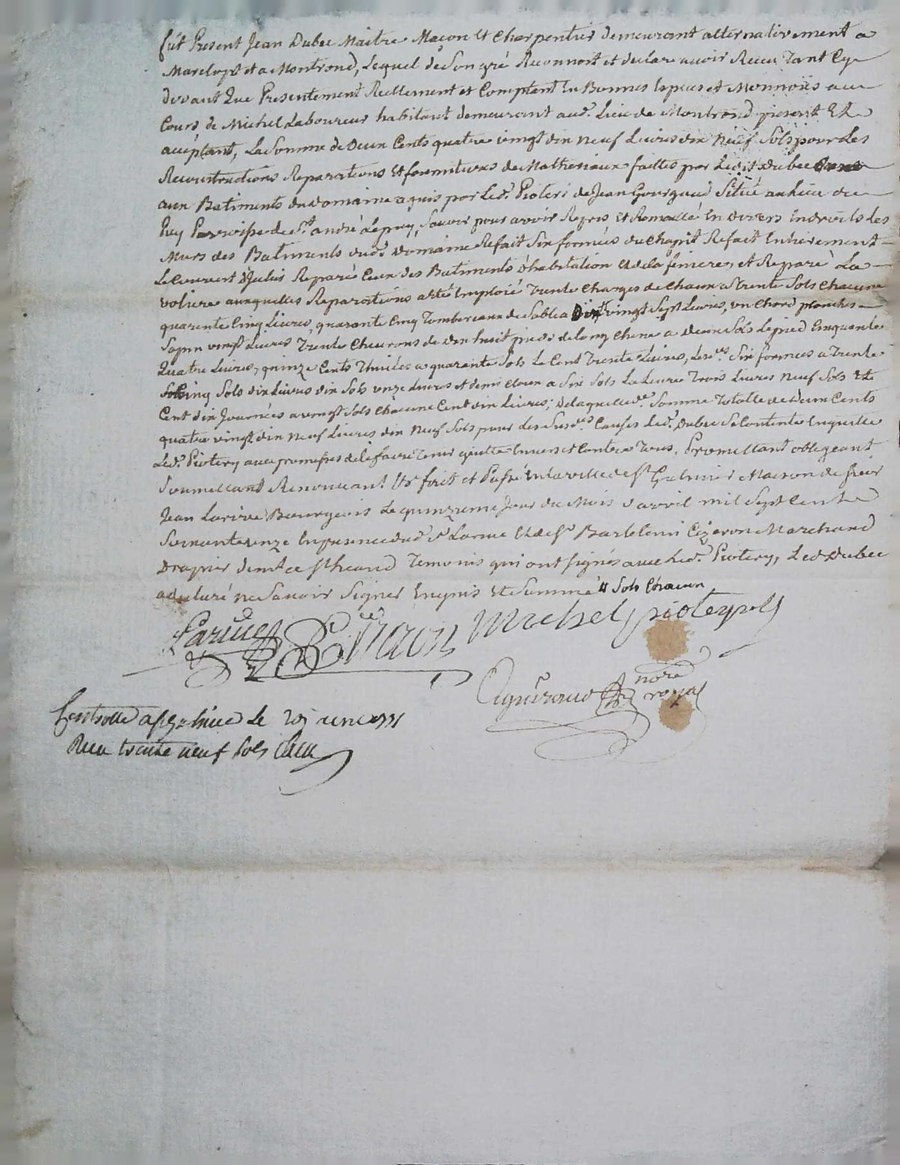 fut Present Jean Dubec Maitre Maçon Et Charpentier demeurant alternativement a
Marclopt et a Montrond, Lequel de Son gré Reconnoit et declare avoir Receu Tant Cy
devant Que Presentement Reellement et Comptant En Bonnes Espices et Monnoiis au
Cours de Michel Laboureur habitant demeurant aud. Lieu de Montrond present Et
acceptant, La Somme de Deux Cents quatre vingt dix neuf Livres dix Neuf Sols pour Les
Reconstructions Reparations Et fournitures de Matheriaux faittes par Ledit Dubec
aux Batiments du domaine aquis par Led. Pioteri de Jean Gourgaud Situé au lieu du
Puy Parroisse de St. andré Lepuy, Savoir pour avoir Repris et Remacé En divers Endroits Les
Murs des Batiments dud. domaine Refait Six formes du Chapit Refait Entierement
Le Couvert d'yceluis Reparés Ceux des Batiments d'habitation et de la feniere, et Reparé La
voliere auxquelles Reparations a été Employé Trente Charges de Chaux a Trente Sols Chacune
quarente Cinq Livres, quarante Cinq Tombereaux de Sable vingt Sept Livres, un Chard planches
Sapin vingt Livres Trente Chevrons de dix huit pieds de long Chene a deux Sols Le pied Cinquante
Quatre Livres, quinze Cents Thuiles a quarante Sols Le Cent Trente Livres, Six formes a Trente
Cinq Sols dix Livres dix Sols unze Livres et demi Cloux a Six Sols La Livre Trois Livres Neuf Sols Et
Cent dix Journées a vingt Sols Chacune Cent dix Livres, de laquelle Somme Totalle de deux Cents
quatre vingt dix Neuf Livres dix Neuf Sols pour les Susd. Causes Led. Dubec Se Contente En quitte
Led. Piotery aux promesses de le faire Tenir quitte Envers et Contre Tous, Promettant obligeant
Soumettant Renoncant. Et fait et Passé En la ville de St. Galmier Maison de Sieur
Jean Larive Bourgeois Le quinzieme Jour du Mois d'avril mil Sept Cents
Soixante onze En presence dud. Sr. Larive Et de Sr. Bartelemi Marchand
Drapier Temoins qui ont Signés avec Led. Piotery, Led Dubec
a declaré ne Savoir Signer Enquis Et Sommé 4 Sols Chacun
Larive Michel pioterij
nore royal
Controllé a St galmier Le 1771
Receu trente neuf Sols